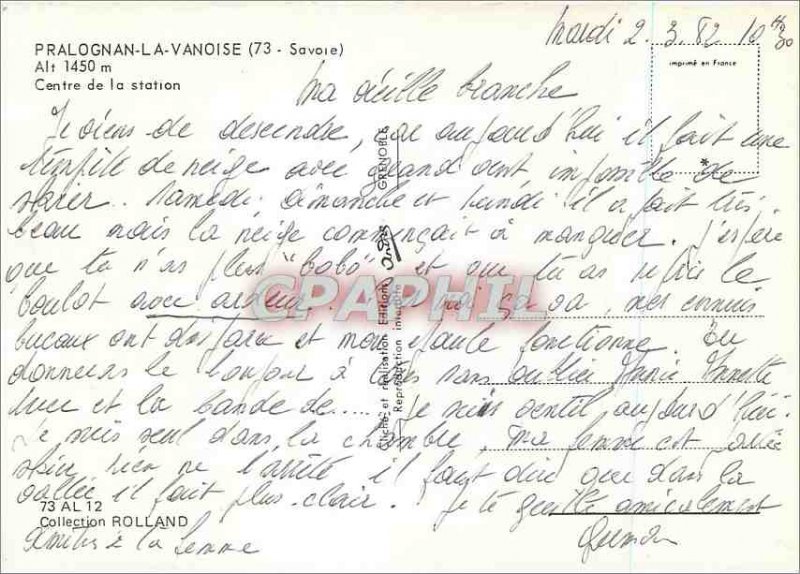 Mardi 2.3.82 10H30
PRALOGNAN-LA-VANOISE (73 - Savoie)
Alt 1450 m
Centre de la station
imprimé en France
Ma vieille branche
Je viens de descendre, car aujourd'hui il fait une
tempête de neige avec grand vent impossible de
skier. Samedi Dimanche et Lundi il a fait très
beau mais la neige commençait à manquer. J'espère
que tu n'as plus "bobo" et que tu as repris le
boulot avec ardeur. moi ça va, mes ennuis
buccaux ont disparu et mon épaule fonctionne. Tu
donneras le bonjour à toutes sans oublier Annie Annette
Luce et la bande de..... Je suis gentil aujourd'hui.
Je suis seul dans la chambre, ma femme est allée
skier, rien ne l'arrête il faut dire que dans la
vallée il fait plus clair. Je te quitte amicalement
73 AL 12
Collection ROLLAND
Amitiés à la femme
Cliché et réalisation Editions André GRENOBLE
Reproduction interdite
CPAPHIL